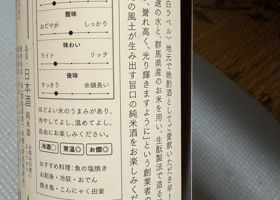 白ラベル〉地元で晩酌酒としてご愛飲いただき早
選の水と、群馬県産のお米を用い、生酛製法で造
、誉れ高く、光り輝きますように」という創業者の
の風土が生み出す旨口の純米酒をお楽しみくだ
酸味
おだやか
しっかり
味わい
ライト
リッチ
後味
すっきり
余韻長い
ほどよい米のうまみがあり、
冷やしてよし、温めてよし、
自由にお楽しみください。
冷酒○
常温◎
お燗◎
おすすめ料理:魚の塩焼き
お刺身・冷奴・おでん
焼き鳥・こんにゃく田楽
品目
日本酒
純米酒